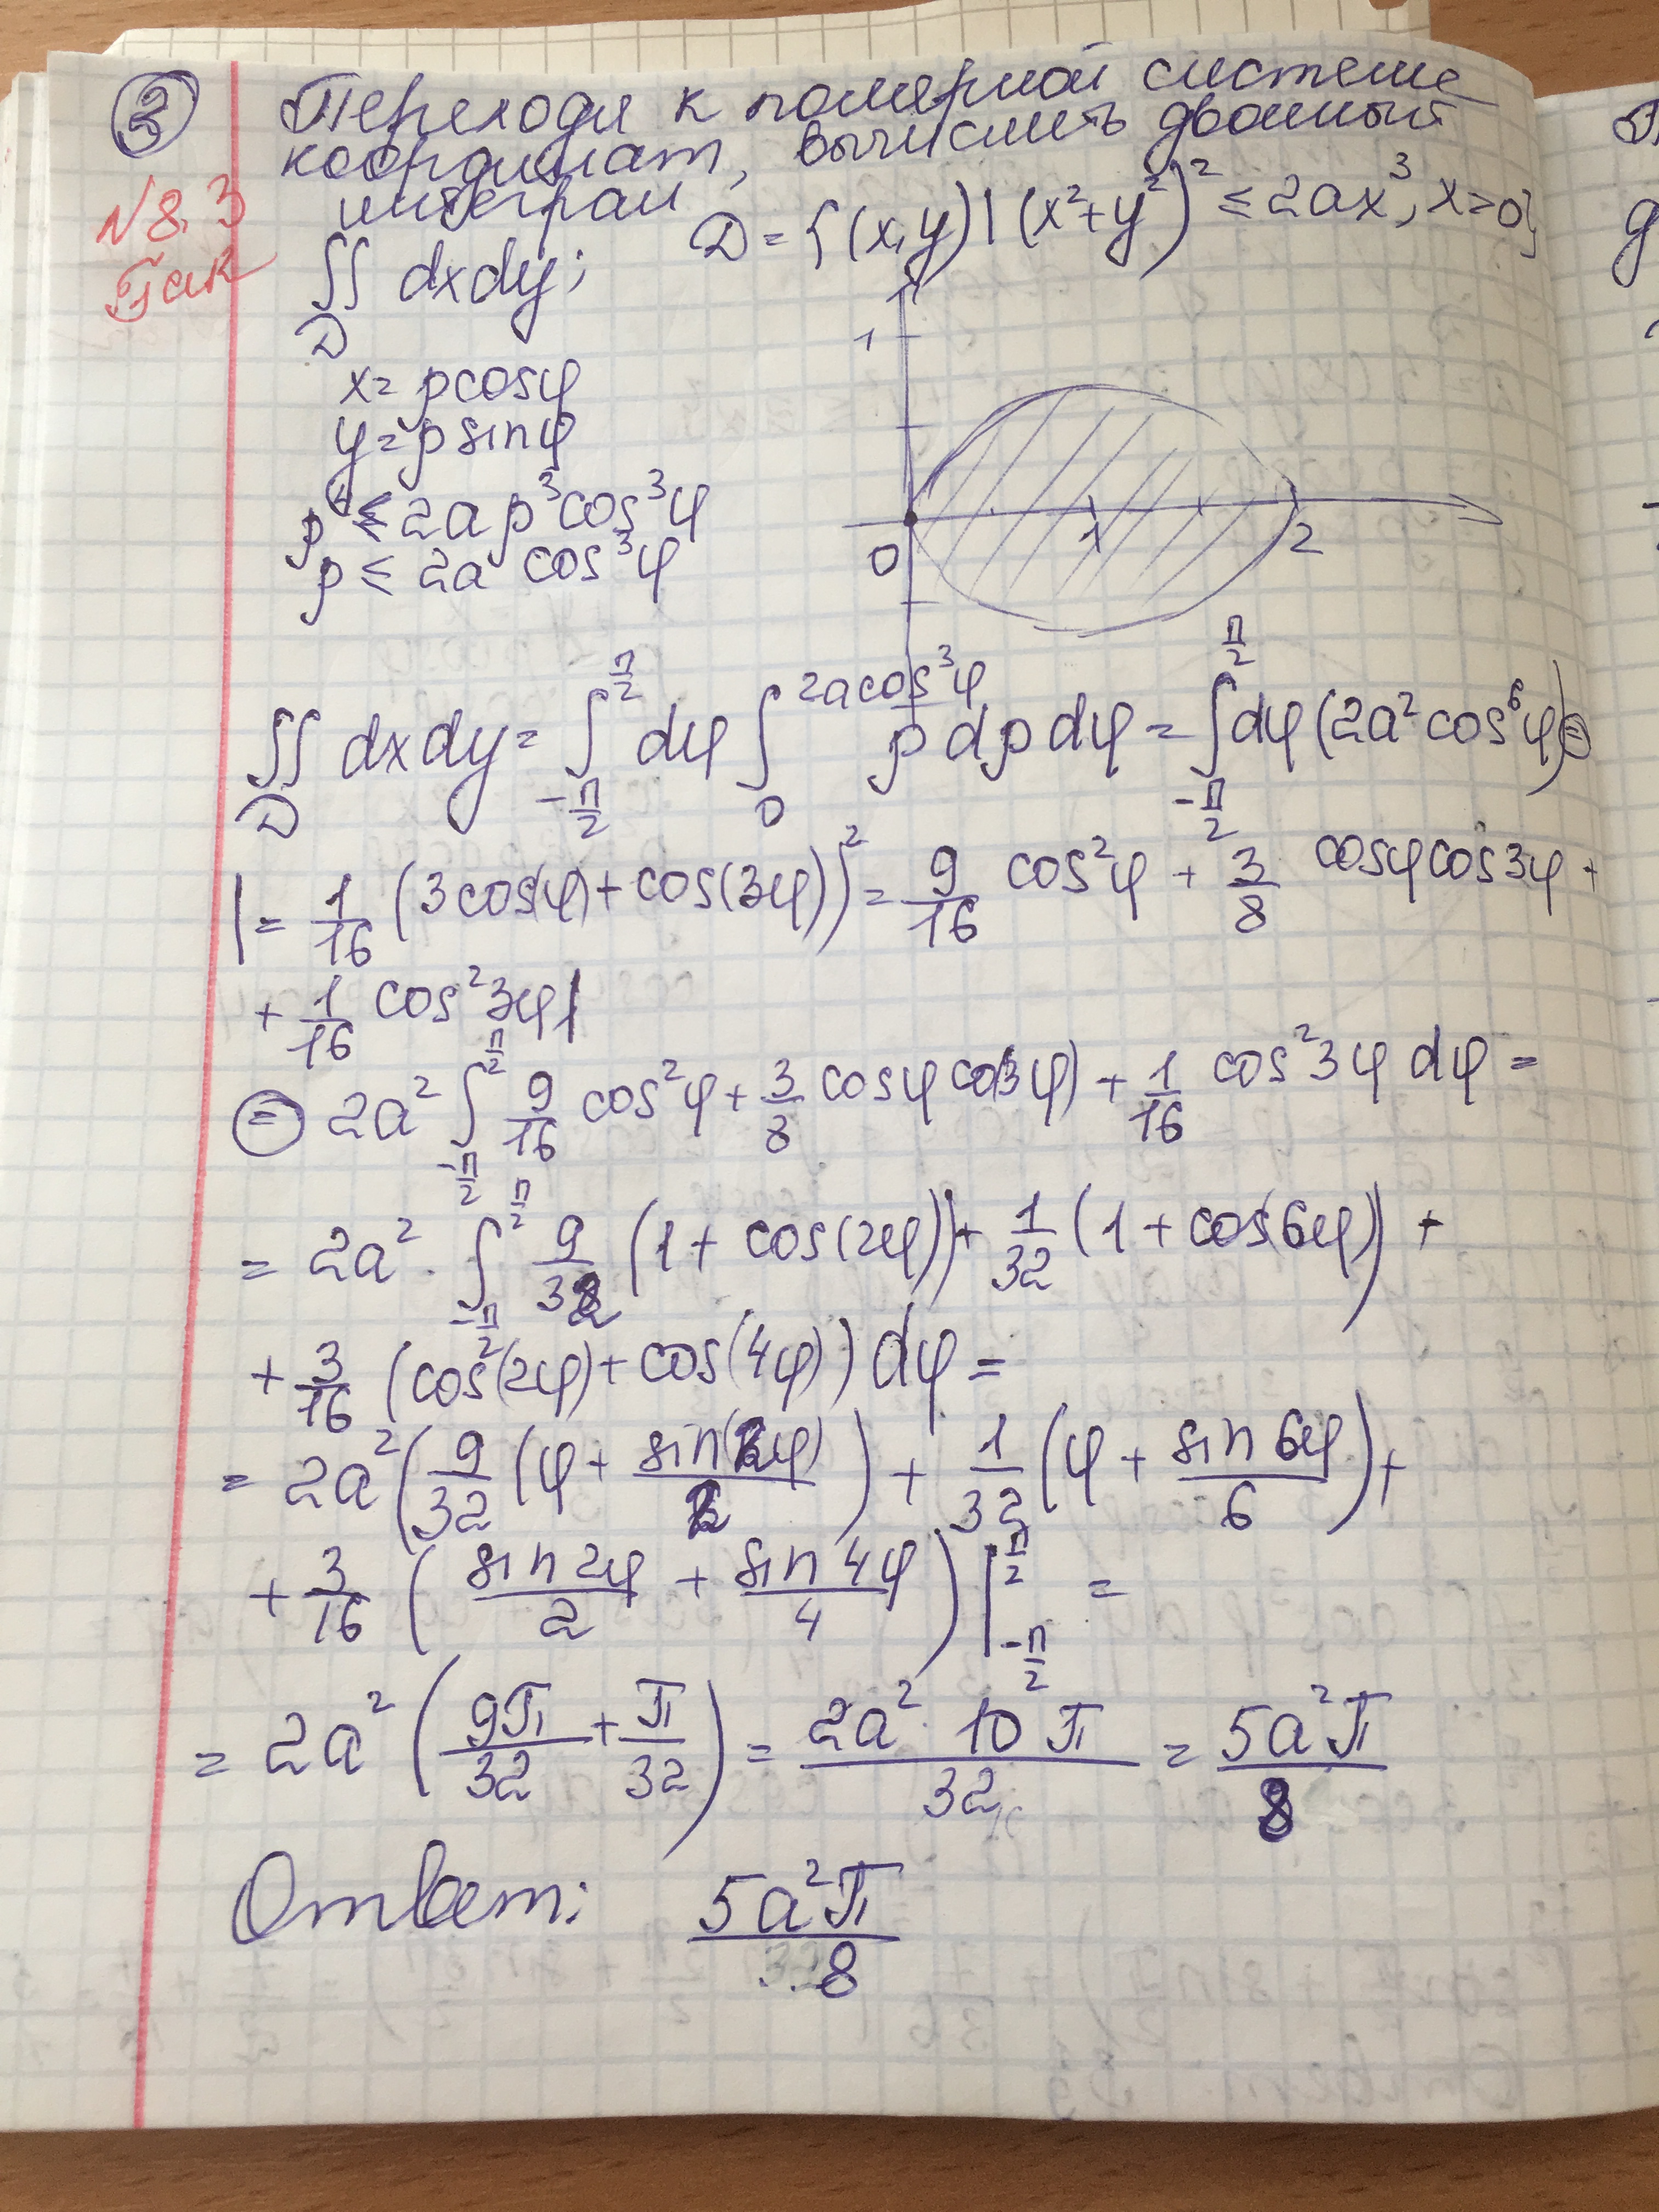 ② Переходя к полярной системе
координат, вычислить двойный
интеграл
N 8.3
Гак
∬_D dxdy; D = {(x,y) | (x²+y²)² ≤ 2ax³, x≥0}
x = ρcosφ
y = ρsinφ
ρ⁴ ≤ 2aρ³cos³φ
ρ ≤ 2a cos³φ
1
0 1 2
∬_D dxdy = ∫_{-π/2}^{π/2} dφ ∫_0^{2acos³φ} ρ dρ dφ = ∫_{-π/2}^{π/2} dφ (2a² cos⁶φ) ⊜
| = 1/16 (3cos(φ) + cos(3φ))² = 9/16 cos²φ + 3/8 cosφcos3φ +
+ 1/16 cos²3φ |
⊜ 2a² ∫_{-π/2}^{π/2} 9/16 cos²φ + 3/8 cosφ cos3φ) + 1/16 cos²3φ dφ =
= 2a² · ∫_{-π/2}^{π/2} 9/32 (1 + cos(2φ)) + 1/32 (1 + cos(6φ)) +
+ 3/16 (cos(2φ) + cos(4φ)) dφ =
= 2a² (9/32 (φ + sin(2φ)/2) + 1/32 (φ + sin6φ/6) +
+ 3/16 (sin2φ/2 + sin4φ/4) |_{-π/2}^{π/2} =
= 2a² (9π/32 + π/32) = 2a²·10π/32 = 5a²π/8
Ответ: 5a²π/8